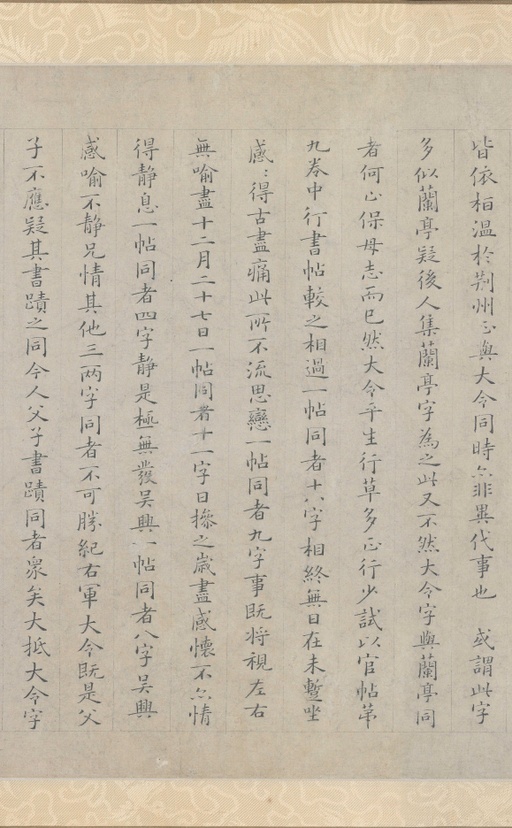 皆依桓温於荆州正與大令同時亦非異代事也　或謂此字
多似蘭亭疑後人集蘭亭字為之此又不然大令字與蘭亭同
者何止保母志而已然大令平生行草多正行少試以官帖第
九卷中行書帖較之相過一帖同者十八字相終無日在未蹔坐
感〻得古盡痛此所不流思戀一帖同者九字事既将視左右
無喻盡十二月二十七日一帖同者十一字日撡之歲盡感懷不亦情
得静息一帖同者四字静是極無發吴興一帖同者八字吴興
感喻不静兄情其他三两字同者不可勝紀右軍大令既是父
子不應疑其書蹟之同今人父子書蹟同者衆矣大抵大令字